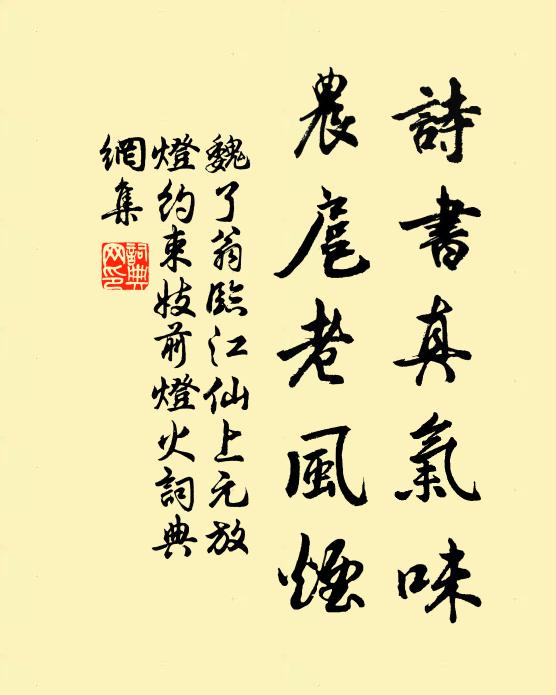 詩書真氣味
農扈老風煙
魏了翁臨江仙上元放
燈約束妓前燈火詞典
網集
詞典网印